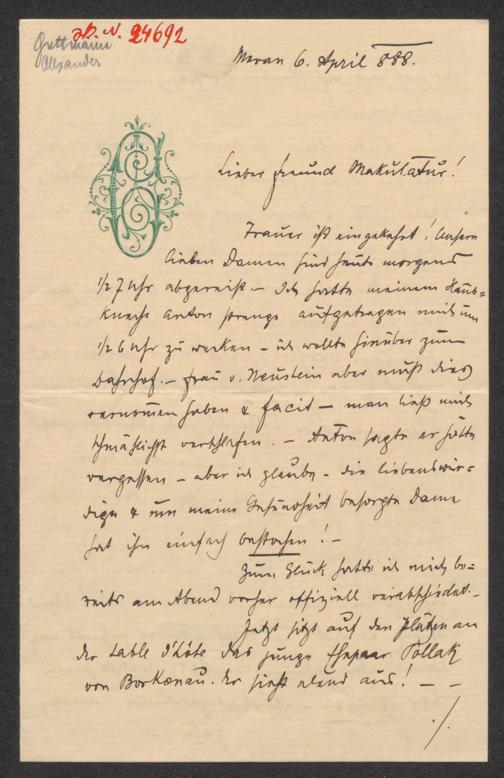 J.N. 24692
Grettmann
Alexander
Meran 6. April 888.
Lieber Freund Makulatur!
Trauer ist eingekehrt! Unsere
lieben Damen sind heute morgens
1/2 7 Uhr abgereist. – Ich hatte meinem Haus=
knecht Anton strenge aufgetragen mich um
1/2 6 Uhr zu wecken – ich wollte hinüber zum
Bahnhof. – Frau v. Neustein aber muß dies
vernommen haben & facit – man ließ mich
schmählichst verschlafen. – Anton sagte er hätte
vergessen – aber ich glaube – die liebenswür=
dige & um meine Gesundheit besorgte Dame
hat ihn einfach bestochen! –
Zum Glück hatte ich mich be=
reits am Abend vorher offiziell verabschiedet. –
Jetzt sitzt auf den Plätzen an
der table d'hôte das junge Ehepaar Pollak
von Borkenau. Er sieht elend aus! – –
./.